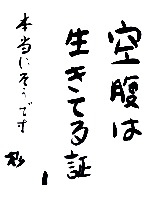 空腹は
生きてる証
本当にそうです